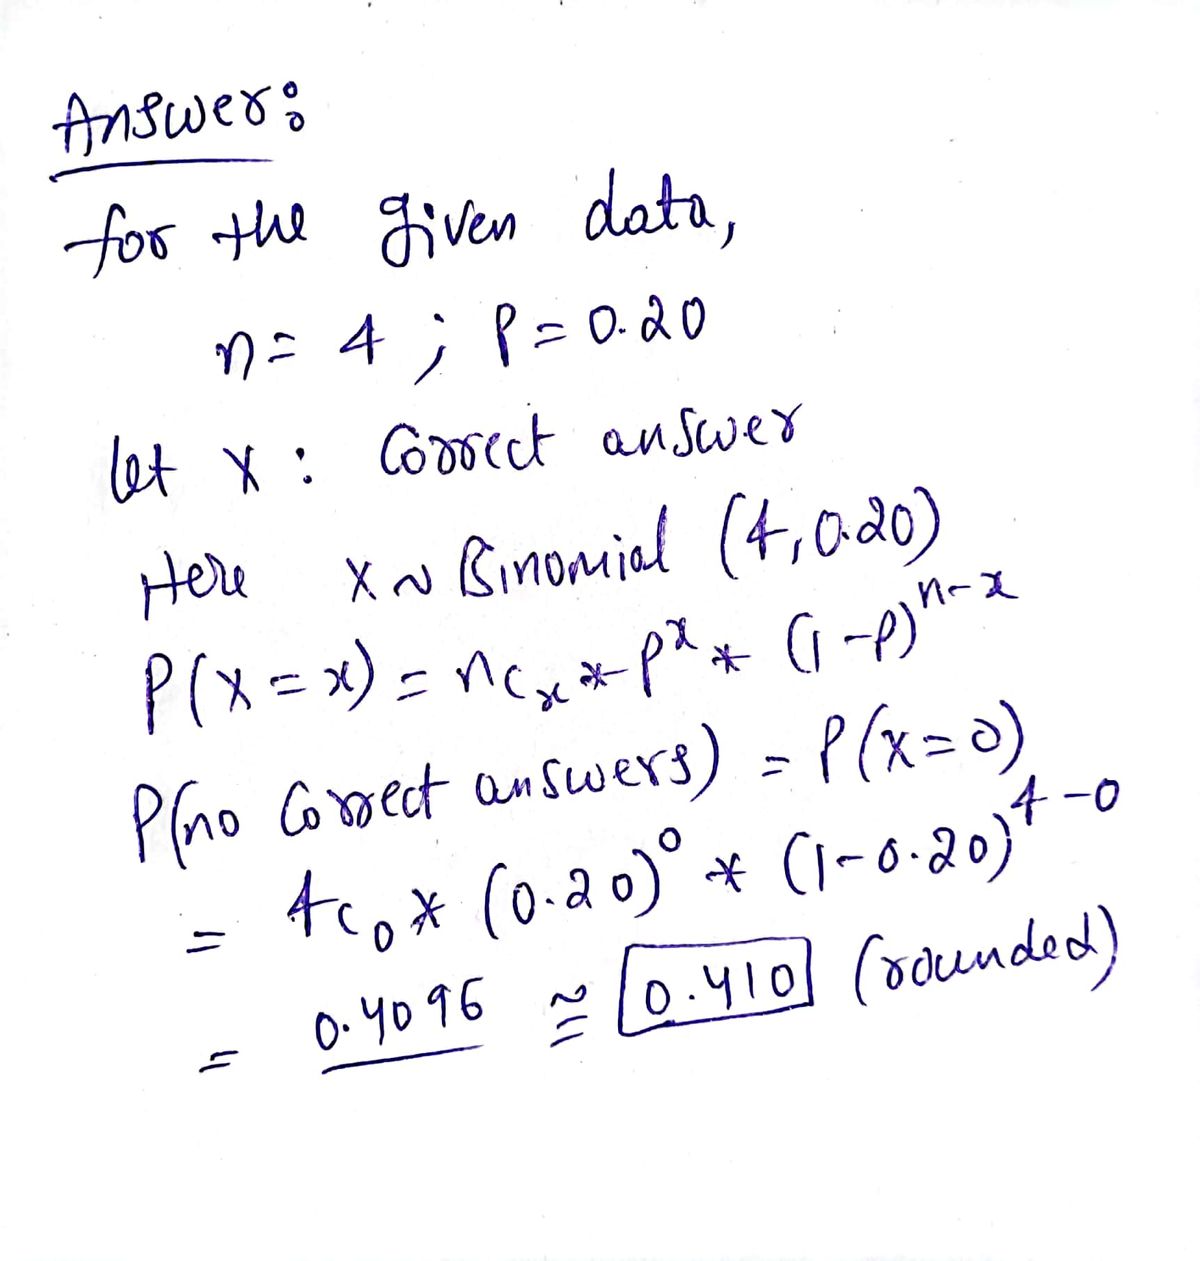 Answer:
for the given data,
n = 4 ; P = 0.20
let X : Correct answer
Here X ~ Binomial (4, 0.20)
P(X = x) = nCₓ * pˣ * (1-p)ⁿ⁻ˣ
P(no Correct answers) = P(X=0)
= 4C₀ * (0.20)⁰ * (1-0.20)⁴⁻⁰
= 0.4096 ≅ 0.410 (rounded)